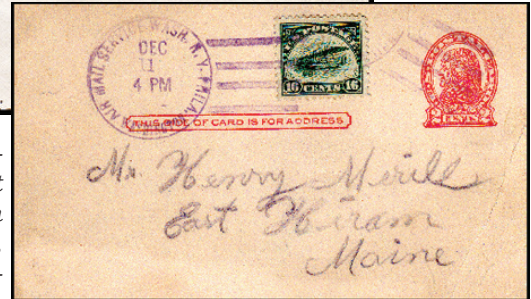 AIR MAIL SERVICE WASH. N.Y. PHILA.
DEC
11
4 PM
U.S. POSTAGE
16 CENTS 16
2 CENTS 2
THIS SIDE OF CARD IS FOR ADDRESS
Mr. Henry Merill
East Hiram
Maine